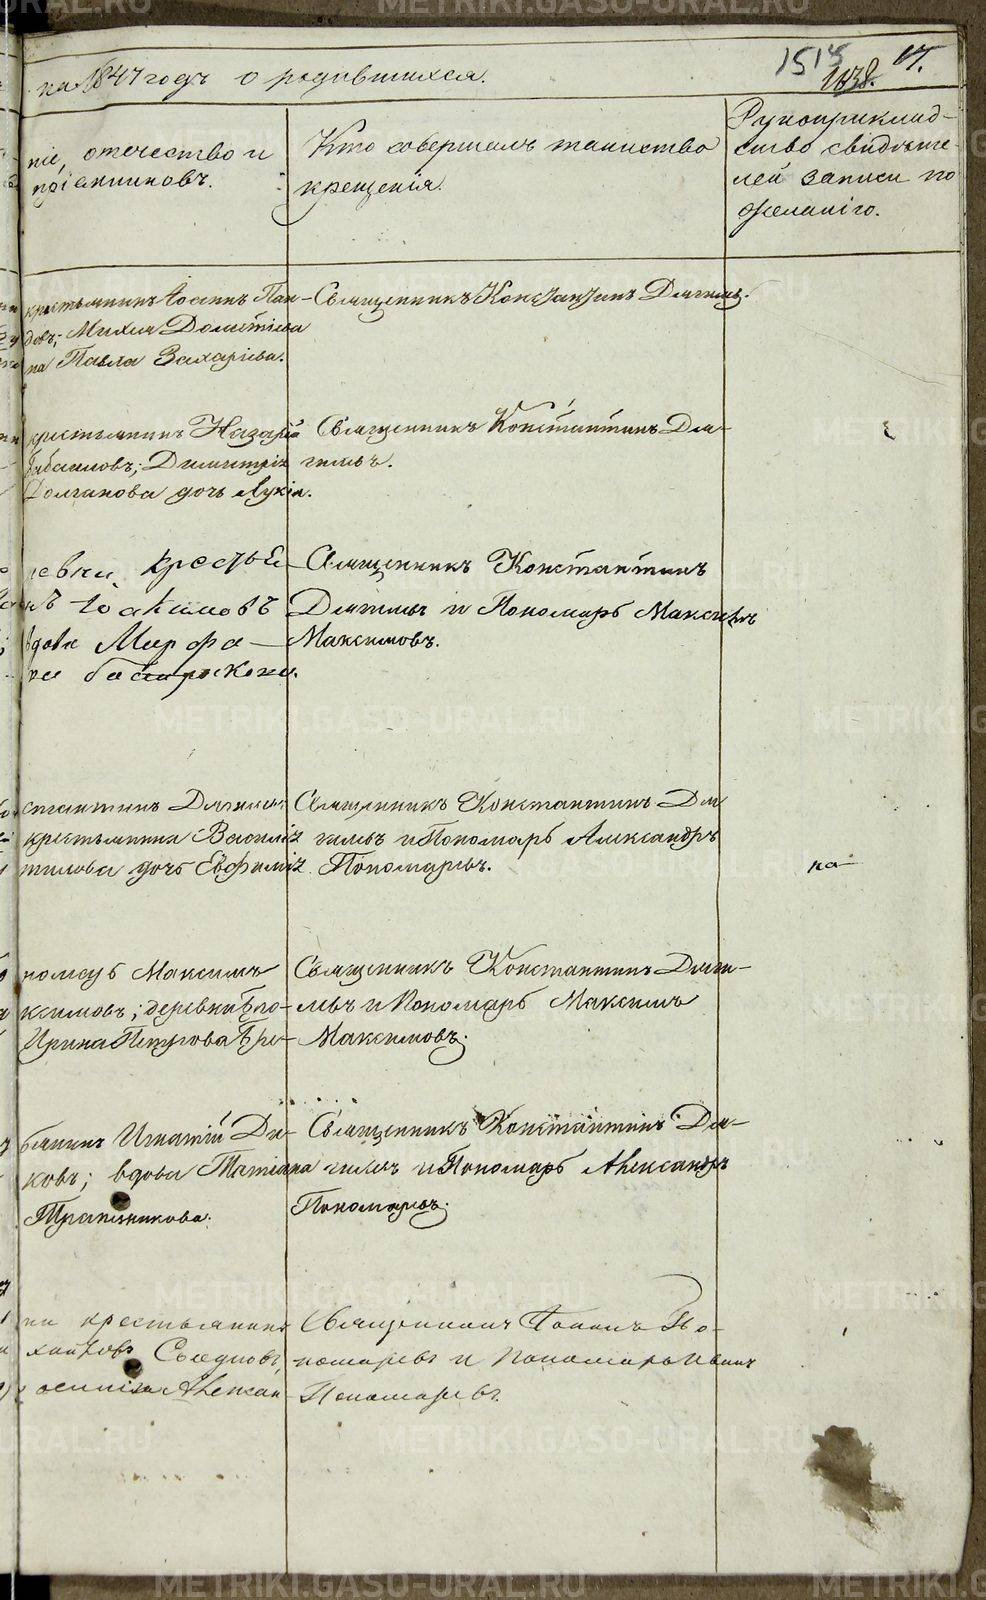 на 1847 годъ о родившихся.
1515
1038.
17.
ніе, отечество и
пріемниковъ.
Кто совершалъ таинство
крещенія.
Рукоприклад-
ство свидѣте-
лей записи по
желанію.
крестьянинъ Іоаннъ Пан-
довъ;
на Павла Захаріева.
Священникъ Константинъ Дягилевъ.
крестьянинъ Назарій
Димитрія
Долганова дочь Лукія.
Священникъ Константинъ Дя-
гилевъ.
ревни кресть
нъ Іоакимовъ
вдова Марфа
Священникъ Константинъ
Дягилевъ и Пономарь Максимъ
Максимовъ.
стантинъ Дягилевъ
крестьянина Василія
тилова дочь Евфимія
Священникъ Константинъ Дя
гилевъ и Пономарь Александръ
Пономаревъ.
на
номарь Максимъ
ксимовъ; деревни
Ирина Петрова
Священникъ Константинъ Дяги-
левъ и Пономарь Максимъ
Максимовъ.
Игнатій Дя-
ковъ; вдова Татіана
Трапезникова.
Священникъ Константинъ Дя-
гилевъ и Пономарь Александръ
Пономаревъ.
ни крестьянинъ
Слѣдновъ,
Алексан
Священникъ Іоаннъ По-
номаревъ и Пономарь Иванъ
Пономаревъ.
METRIKI.GASO-URAL.RU